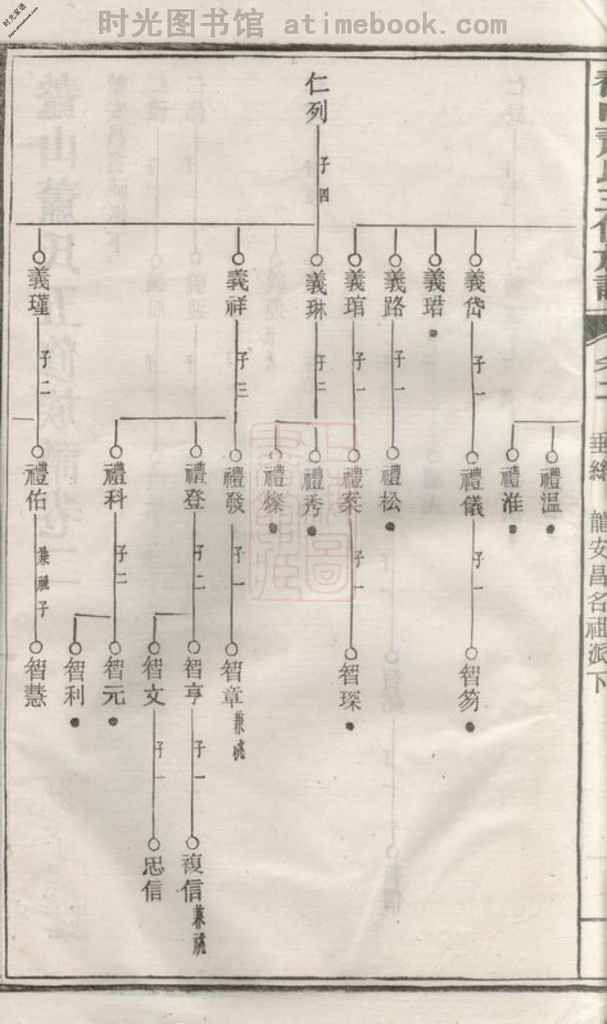 时光图书馆 atimebook.com
垂絲 龍安昌名祖派下
義岱 子一
義珺
義路 子一
義琯 子一
仁列 子四
義琳 子二
義祥 子三
義瑾 子二
禮温
禮淮
禮儀 子一
禮松
禮案 子一
禮秀
禮燦
禮發 子一
禮登 子二
禮科 子二
禮佑 兼祧子
智笏
智琛
智章 兼祧
智亨 子一
智文 子一
智元
智利
智慧
複信 兼祧
思信